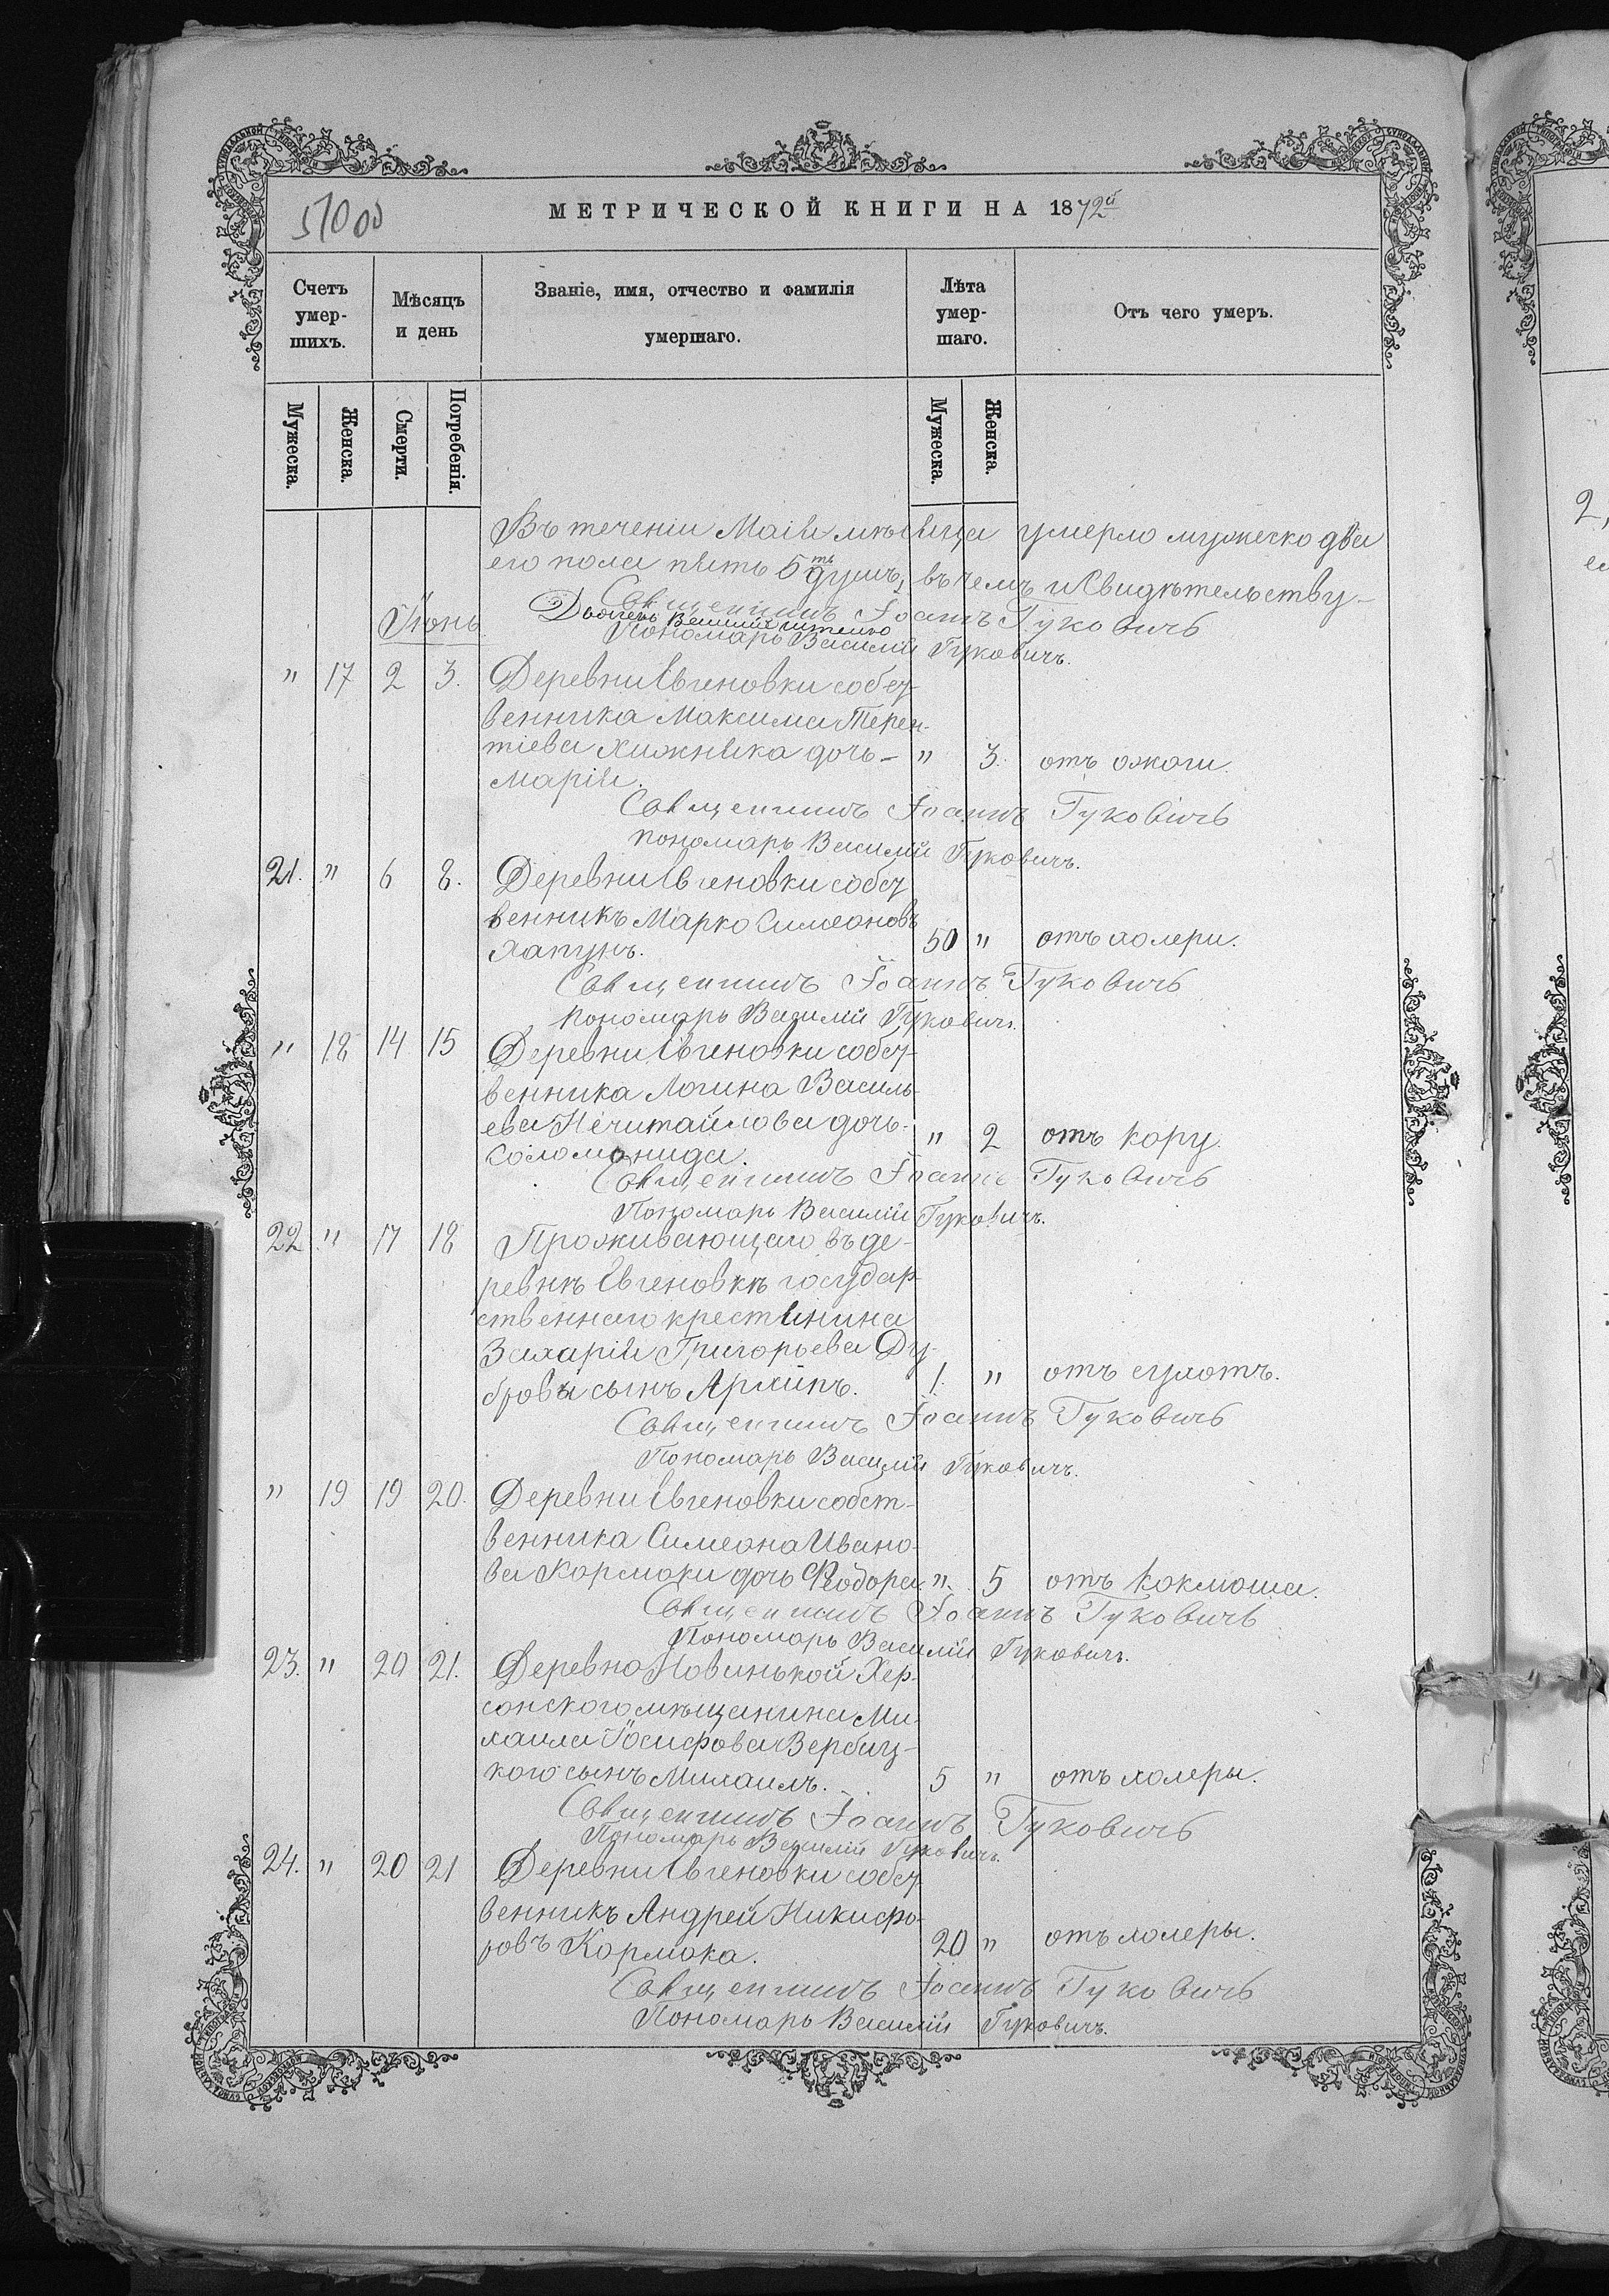 МЕТРИЧЕСКОЙ КНИГИ НА 1872й
Счетъ умер-шихъ.
Мѣсяцъ и день
Званіе, имя, отчество и фамилія умершаго.
Лѣта умер-шаго.
Отъ чего умеръ.
Мужеска.
Женска.
Смерти.
Погребенія.
Мужеска.
Женска.
Въ теченіи Маія мѣсяца умерло мужеско два
его пола пять 5ть душъ, въ чемъ и Свидѣтельству-
Священникъ Іоаннъ Гуковичъ
Іюнь
Пономарь Василій Гуковичъ.
" 17 2 3. Деревни Евгеновки собст-
венника Максима Терен-
тіева Хижняка дочь- " 3. отъ ожоги.
Марія.
Священникъ Іоаннъ Гуковичъ
Пономарь Василій Гуковичъ.
21. " 6 8. Деревни Евгеновки собст
венникъ Марко Симеоновъ
Хапунъ. 50 " отъ холери.
Священникъ Іоаннъ Гуковичъ
Пономарь Василій Гуковичъ.
" 18 14 15 Деревни Евгеновки собст-
венника Логина Василь-
ева Нечитайлова дочь- " 2 отъ кору
Соломонида.
Священникъ Іоаннъ Гуковичъ
Пономарь Василій Гуковичъ.
22 " 17 18 Проживающаго въ де-
ревнѣ Евгеновкѣ государ-
ственнаго крестянина
Захарія Григорьева Ду-
брова сынъ 1. " отъ сухотъ.
Священникъ Іоаннъ Гуковичъ
Пономарь Василій Гуковичъ.
" 19 19 20. Деревни Евгеновки собст-
венника Симеона Ивано-
ва Кормоки дочь Ѳеодора ". 5 отъ коклюша.
Священникъ Іоаннъ Гуковичъ
Пономарь Василій Гуковичъ.
23. " 20 21. Деревно Новинькой Хер-
сонского мѣщанина Ми-
хаила Іосифова Вербиц-
кого сынъ Михаилъ. 5 " отъ холеры.
Священникъ Іоаннъ Гуковичъ
Пономарь Василій Гуковичъ.
24. " 20 21 Деревни Евгеновки собст
венникъ Андрей Никифо-
ровъ Кормока. 20 " отъ холеры.
Священникъ Іоаннъ Гуковичъ
Пономарь Василій Гуковичъ.